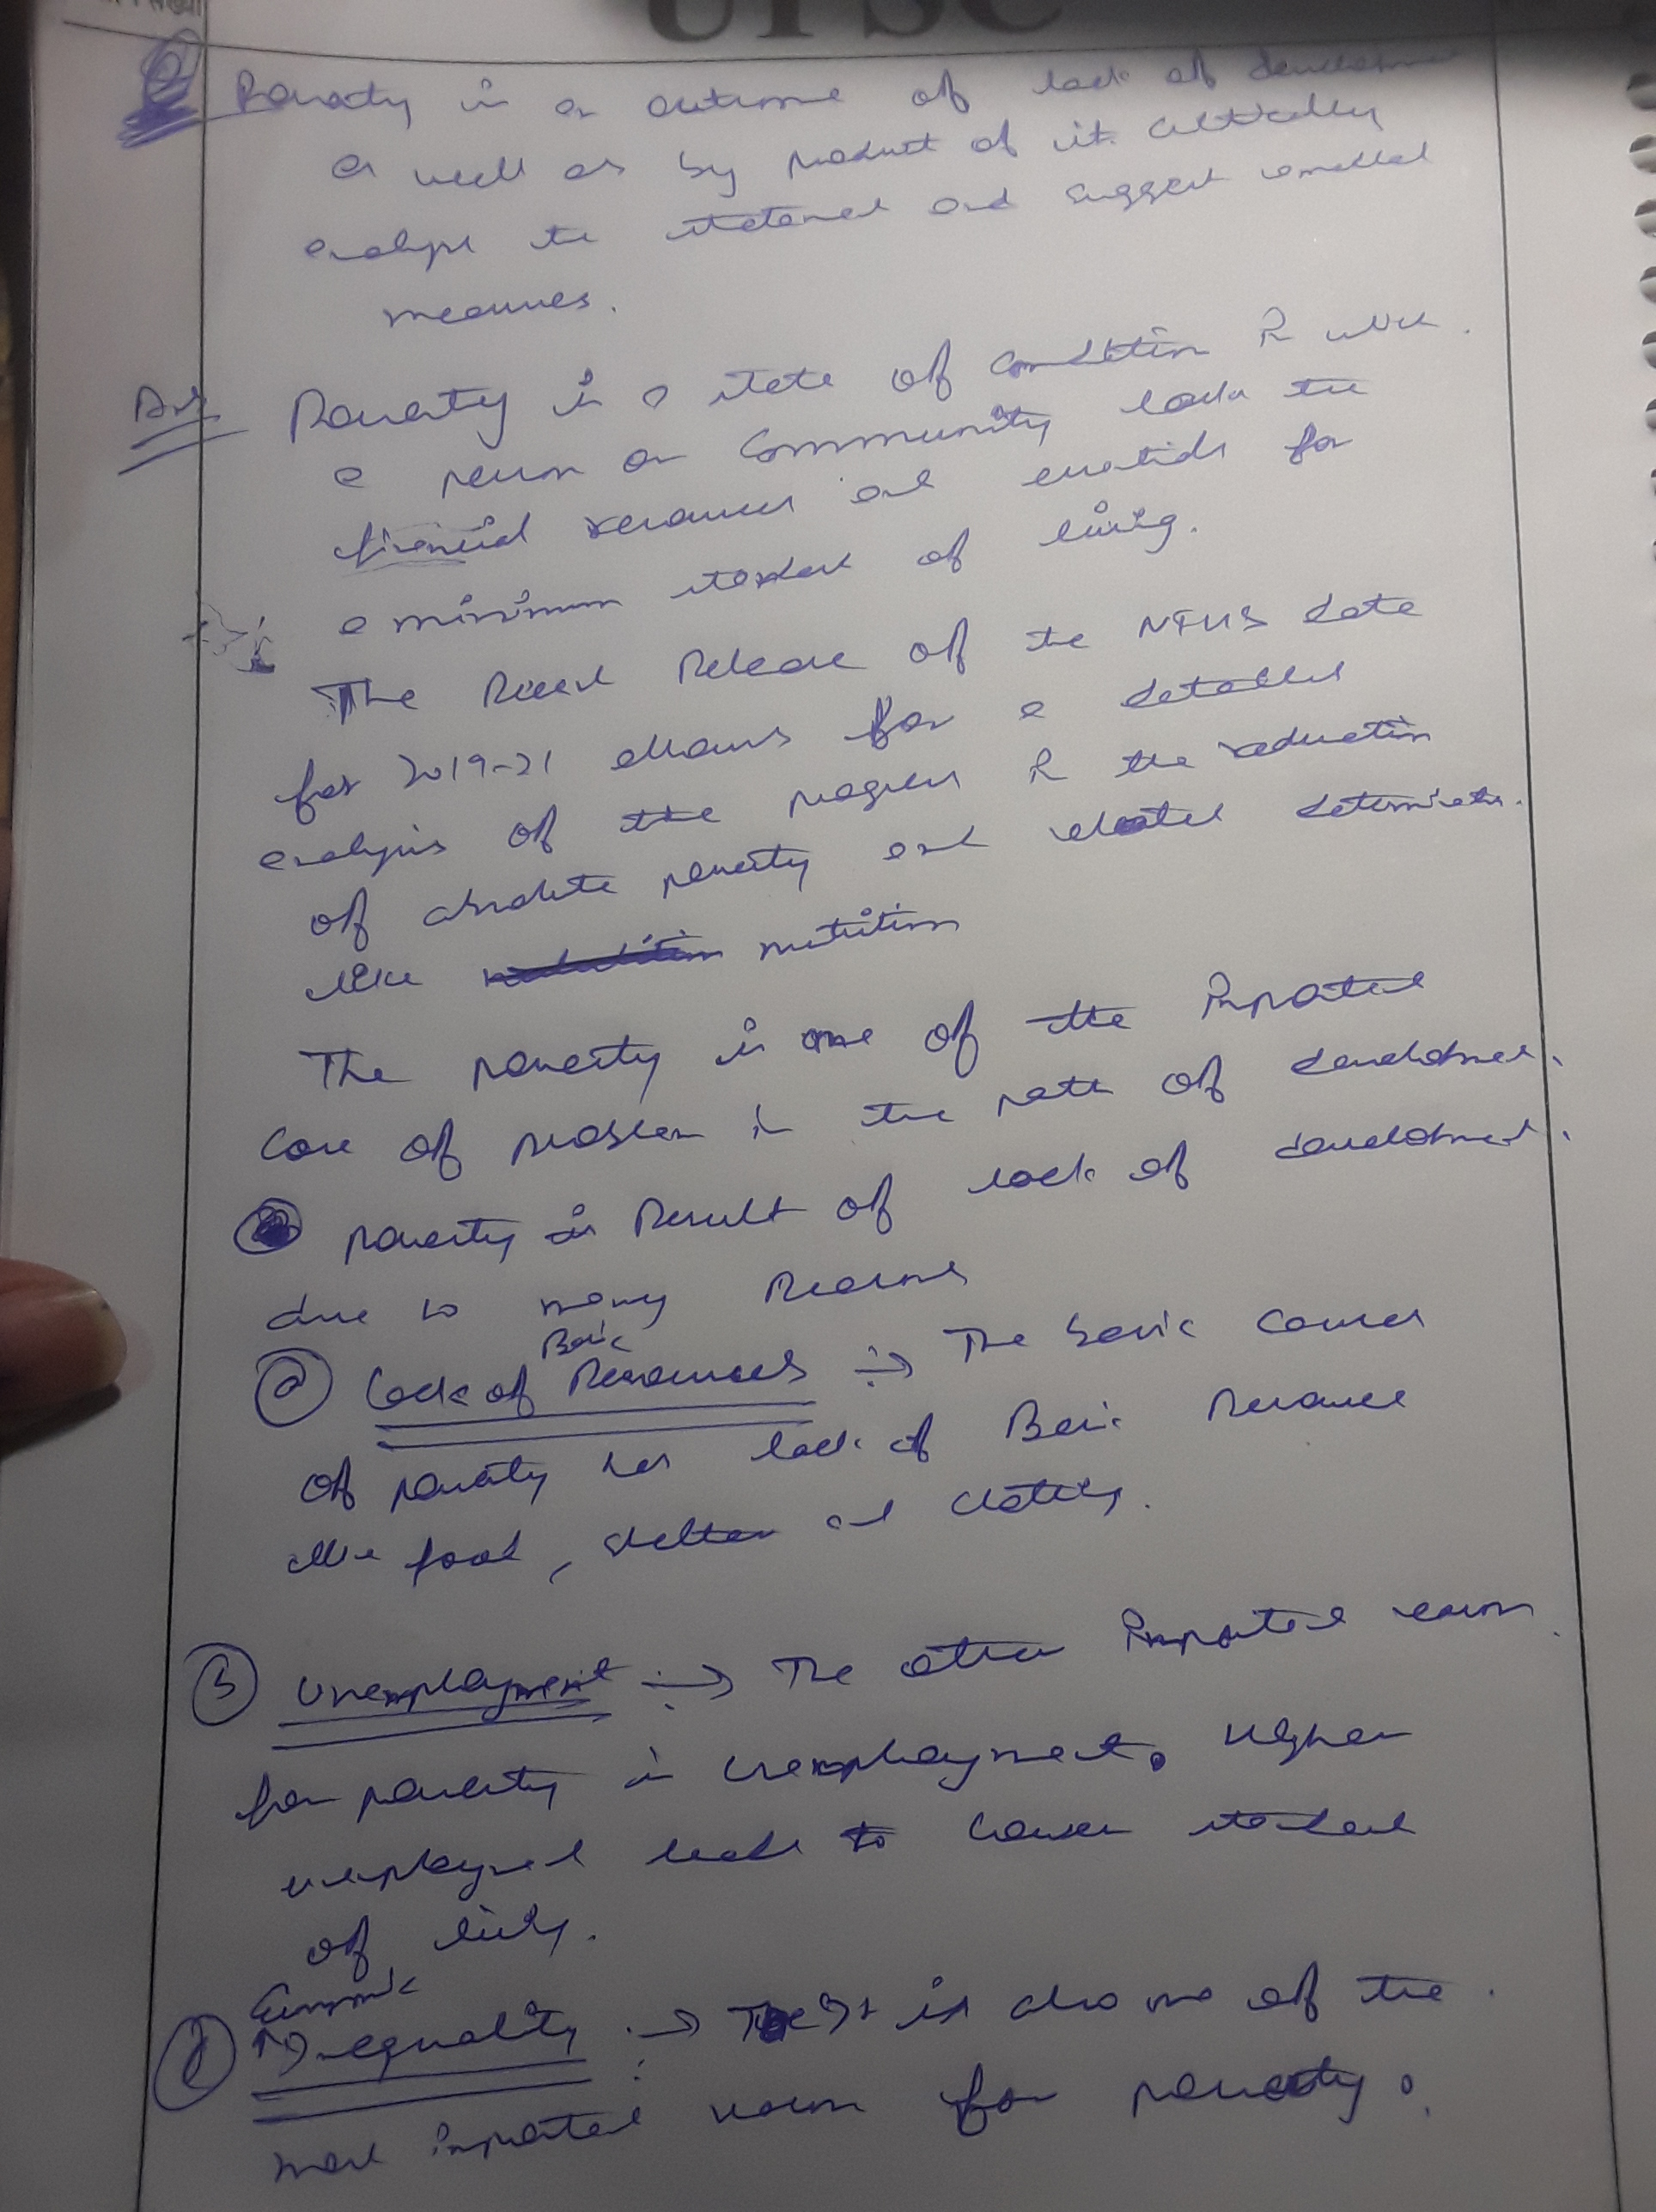 UPSC
Poverty is a outcome of lack of development
as well as by product of it. critically
analyse the statement and suggest remedial
measures.
Ans Poverty is a state of condition in which
a person or Community lacks the
financial resources and essentials for
a minimum standard of living.
The Recent Release of the NFHS data
for 2019-21 allows for a detailed
analysis of the progress in the reduction
of absolute poverty and related determinants
like nutrition
The poverty is one of the Important
Core of problem in the path of development.
poverty is Result of lack of development.
due to many Reasons
Basic
(a) Lack of Resources → The basic Causes
of poverty has lack of Basic Resource
like food, shelter and clothing.
(b) Unemployment → The other Important reason
for poverty is Unemployment. Higher
unemployment leads to Lower standard
of living.
Economic
↑ Inequality → It is also one of the
most important reason for poverty.